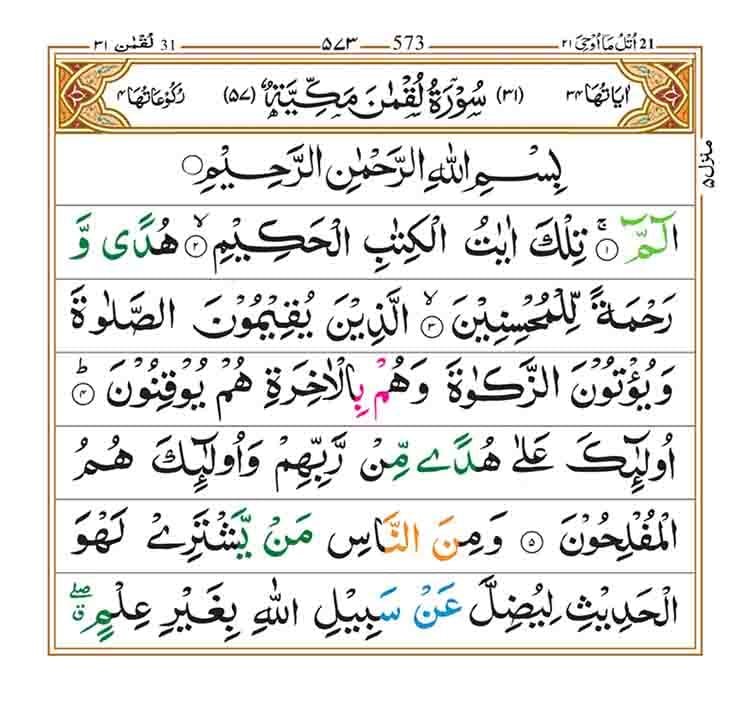 اُتْلُ مَآ اُوْحِیَ ٢١ 21 573 ٥٧٣ لُقْمٰن ٣١ 31
اٰیَاتُهَا ٣٤ (٣١) سُوْرَةُ لُقْمٰنَ مَكِّیَّةٌ (٥٧) رُكُوْعَاتُهَا ٤
بِسْمِ اللّٰهِ الرَّحْمٰنِ الرَّحِیْمِ
منزل ٥
الٓمّٓ ۚ ١ تِلْكَ اٰیٰتُ الْكِتٰبِ الْحَكِیْمِ ۙ ٢ هُدًی وَّ
رَحْمَةً لِّلْمُحْسِنِیْنَ ۙ ٣ الَّذِیْنَ یُقِیْمُوْنَ الصَّلٰوةَ
وَیُؤْتُوْنَ الزَّكٰوةَ وَهُمْ بِالْاٰخِرَةِ هُمْ یُوْقِنُوْنَ ؕ ٤
اُولٰٓئِكَ عَلٰی هُدًی مِّنْ رَّبِّهِمْ وَاُولٰٓئِكَ هُمُ
الْمُفْلِحُوْنَ ٥ وَمِنَ النَّاسِ مَنْ یَّشْتَرِیْ لَهْوَ
الْحَدِیْثِ لِیُضِلَّ عَنْ سَبِیْلِ اللّٰهِ بِغَیْرِ عِلْمٍ ۖ ق